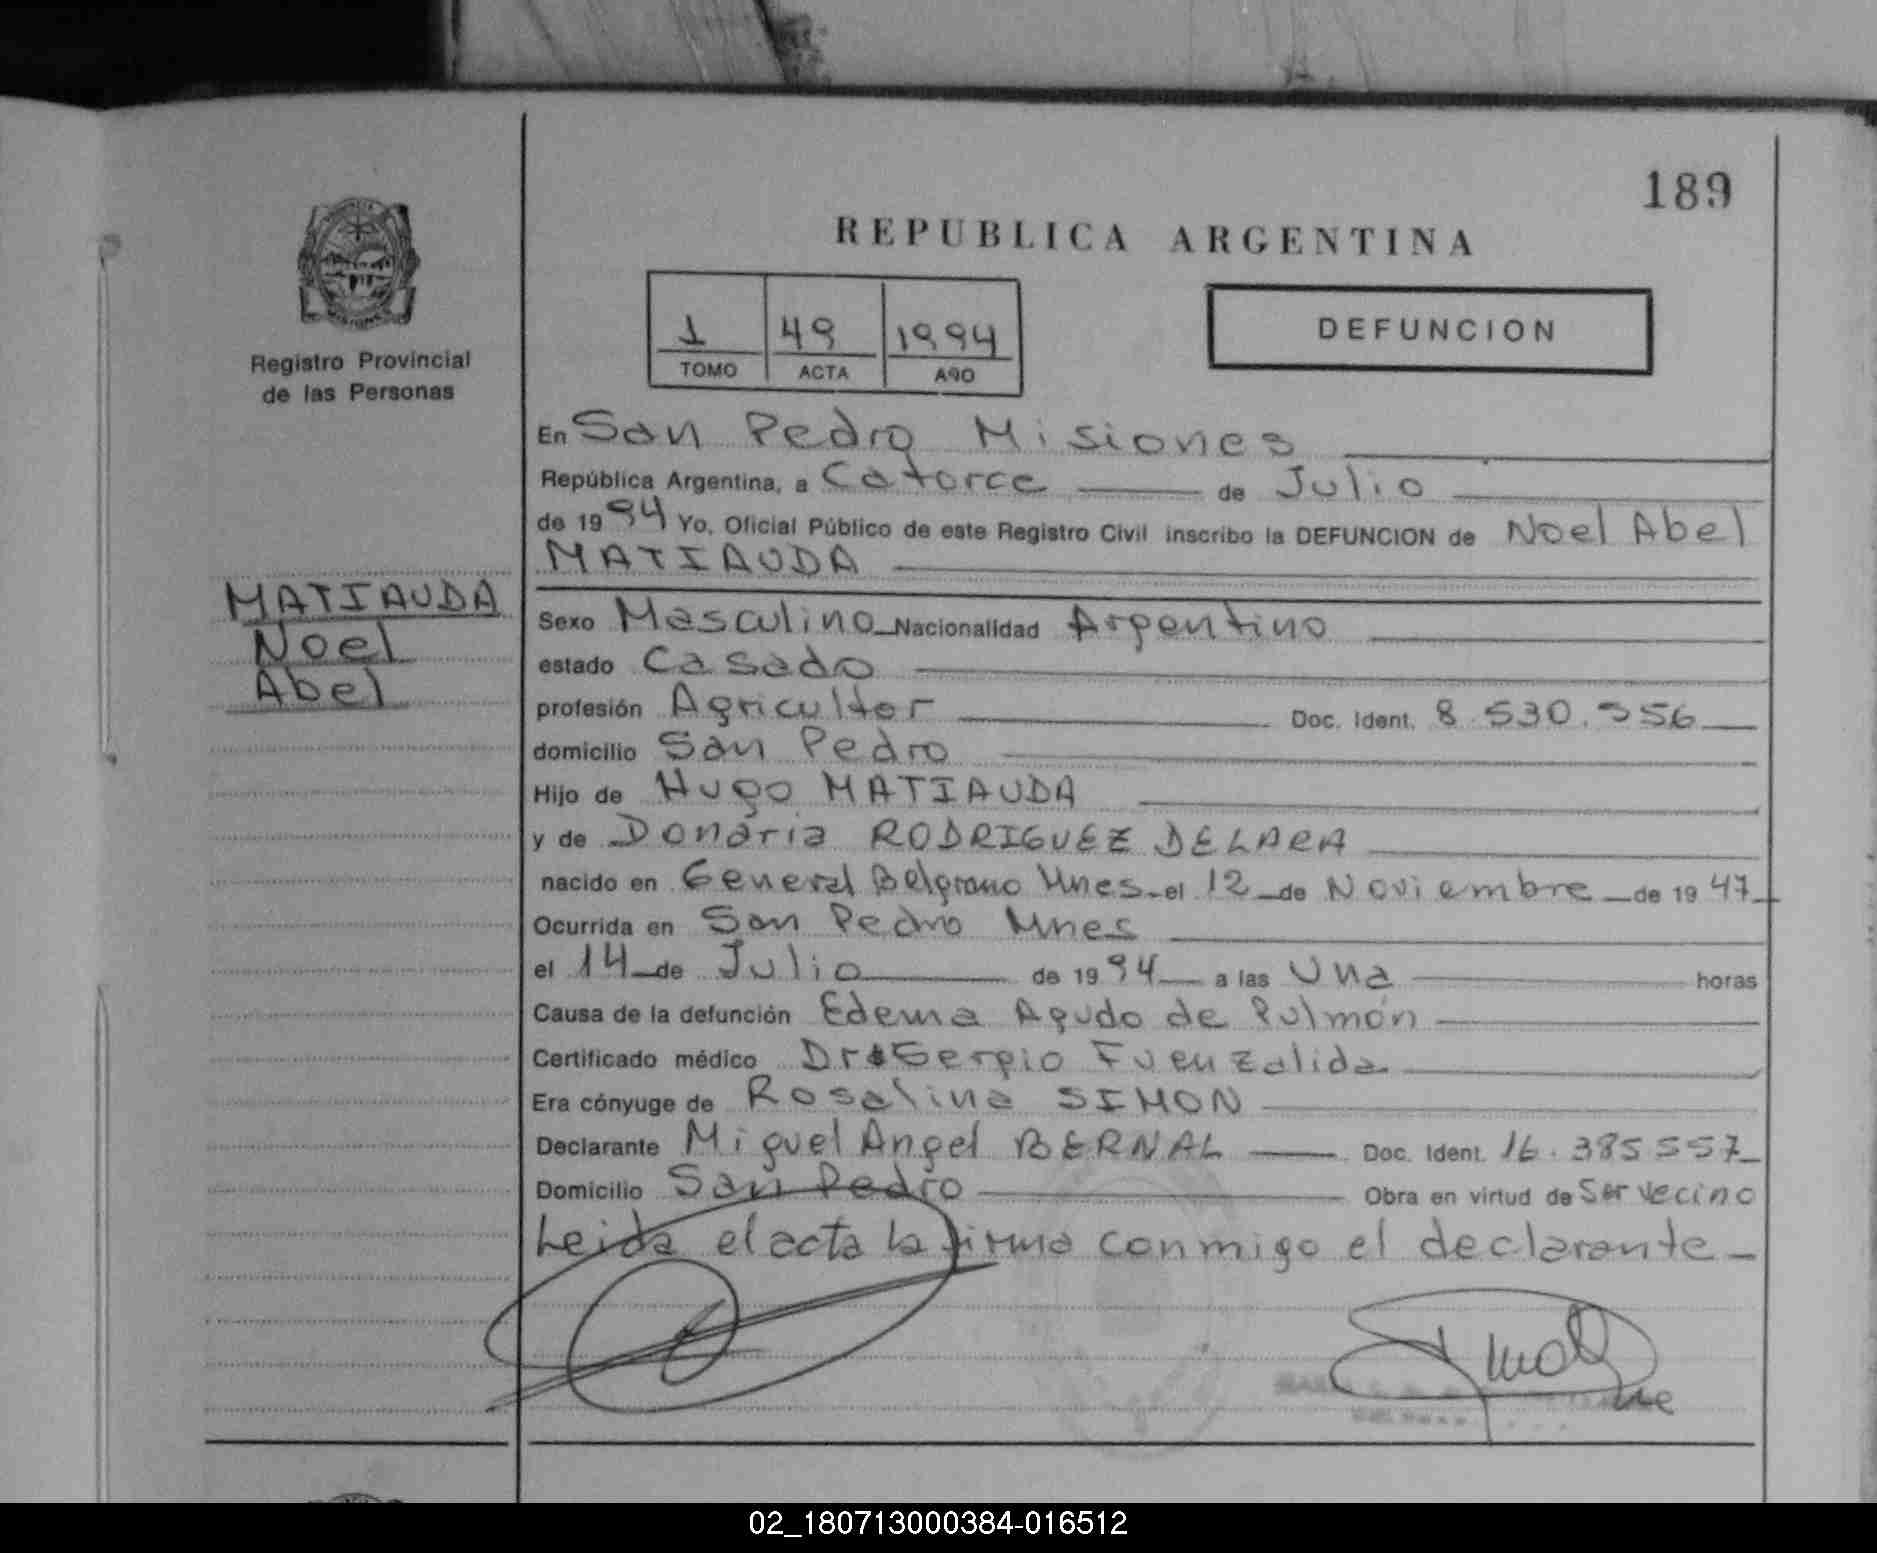 189
REPUBLICA ARGENTINA
Registro Provincial
de las Personas
1 49 1994
TOMO ACTA AÑO
DEFUNCION
En San Pedro Misiones
República Argentina, a Catorce de Julio
de 1994 Yo, Oficial Público de este Registro Civil inscribo la DEFUNCION de Noel Abel
MATIAUDA
MATIAUDA
Noel
Abel
Sexo Masculino Nacionalidad Argentino
estado Casado
profesión Agricultor Doc. Ident. 8.530.556
domicilio San Pedro
Hijo de Hugo MATIAUDA
y de Donaria RODRIGUEZ DELARA
nacido en General Belgrano Mnes el 12 de Noviembre de 1947
Ocurrida en San Pedro Mnes
el 14 de Julio de 1994 a las Una horas
Causa de la defunción Edema Agudo de Pulmón
Certificado médico Dr Sergio Fuenzalida
Era cónyuge de Rosalina SIMON
Declarante Miguel Angel BERNAL Doc. Ident. 16.385.557
Domicilio San Pedro Obra en virtud de Ser vecino
Leida el acta la firma conmigo el declarante
02_180713000384-016512